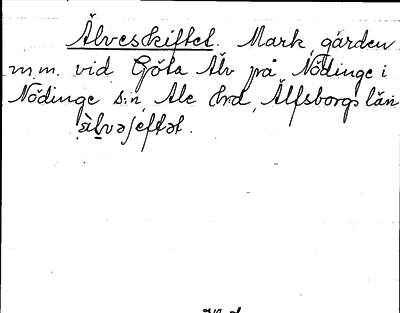 Älveskiftet. Mark, gärden
m.m. vid Göta Älv på Nödinge i
Nödinge s:n, Ale hrd, Älfsborgs län